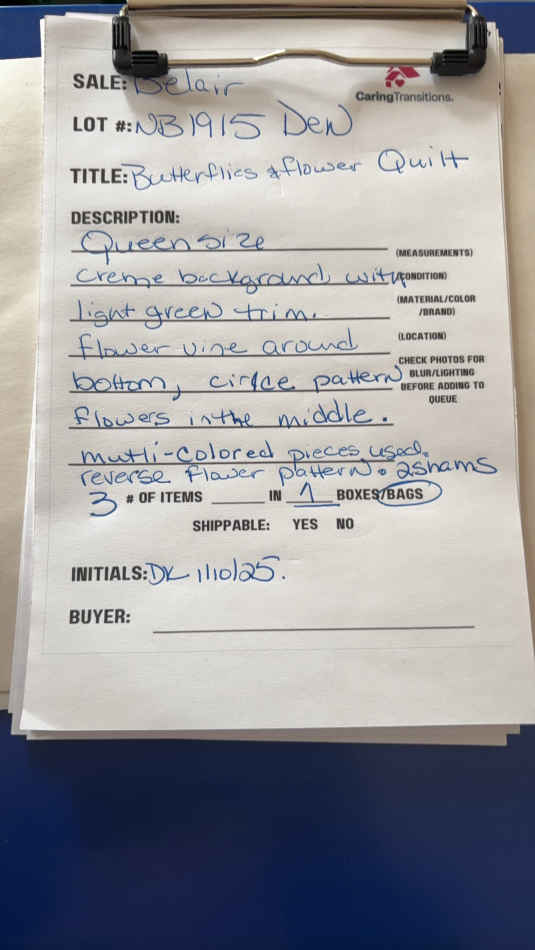 SALE: Belair
CaringTransitions.
LOT #: NB1915 Den
TITLE: Butterflies & flower Quilt
DESCRIPTION:
Queen size
(MEASUREMENTS)
creme background with
(CONDITION)
light green trim.
(MATERIAL/COLOR
/BRAND)
flower vine around
(LOCATION)
CHECK PHOTOS FOR
BLUR/LIGHTING
BEFORE ADDING TO
QUEUE
bottom, cirlce pattern
flowers in the middle.
mutli-colored pieces used.
reverse flower pattern. 2 shams
3 # OF ITEMS ____ IN 1 BOXES/BAGS
SHIPPABLE: YES NO
INITIALS: DK 1/10/25.
BUYER: